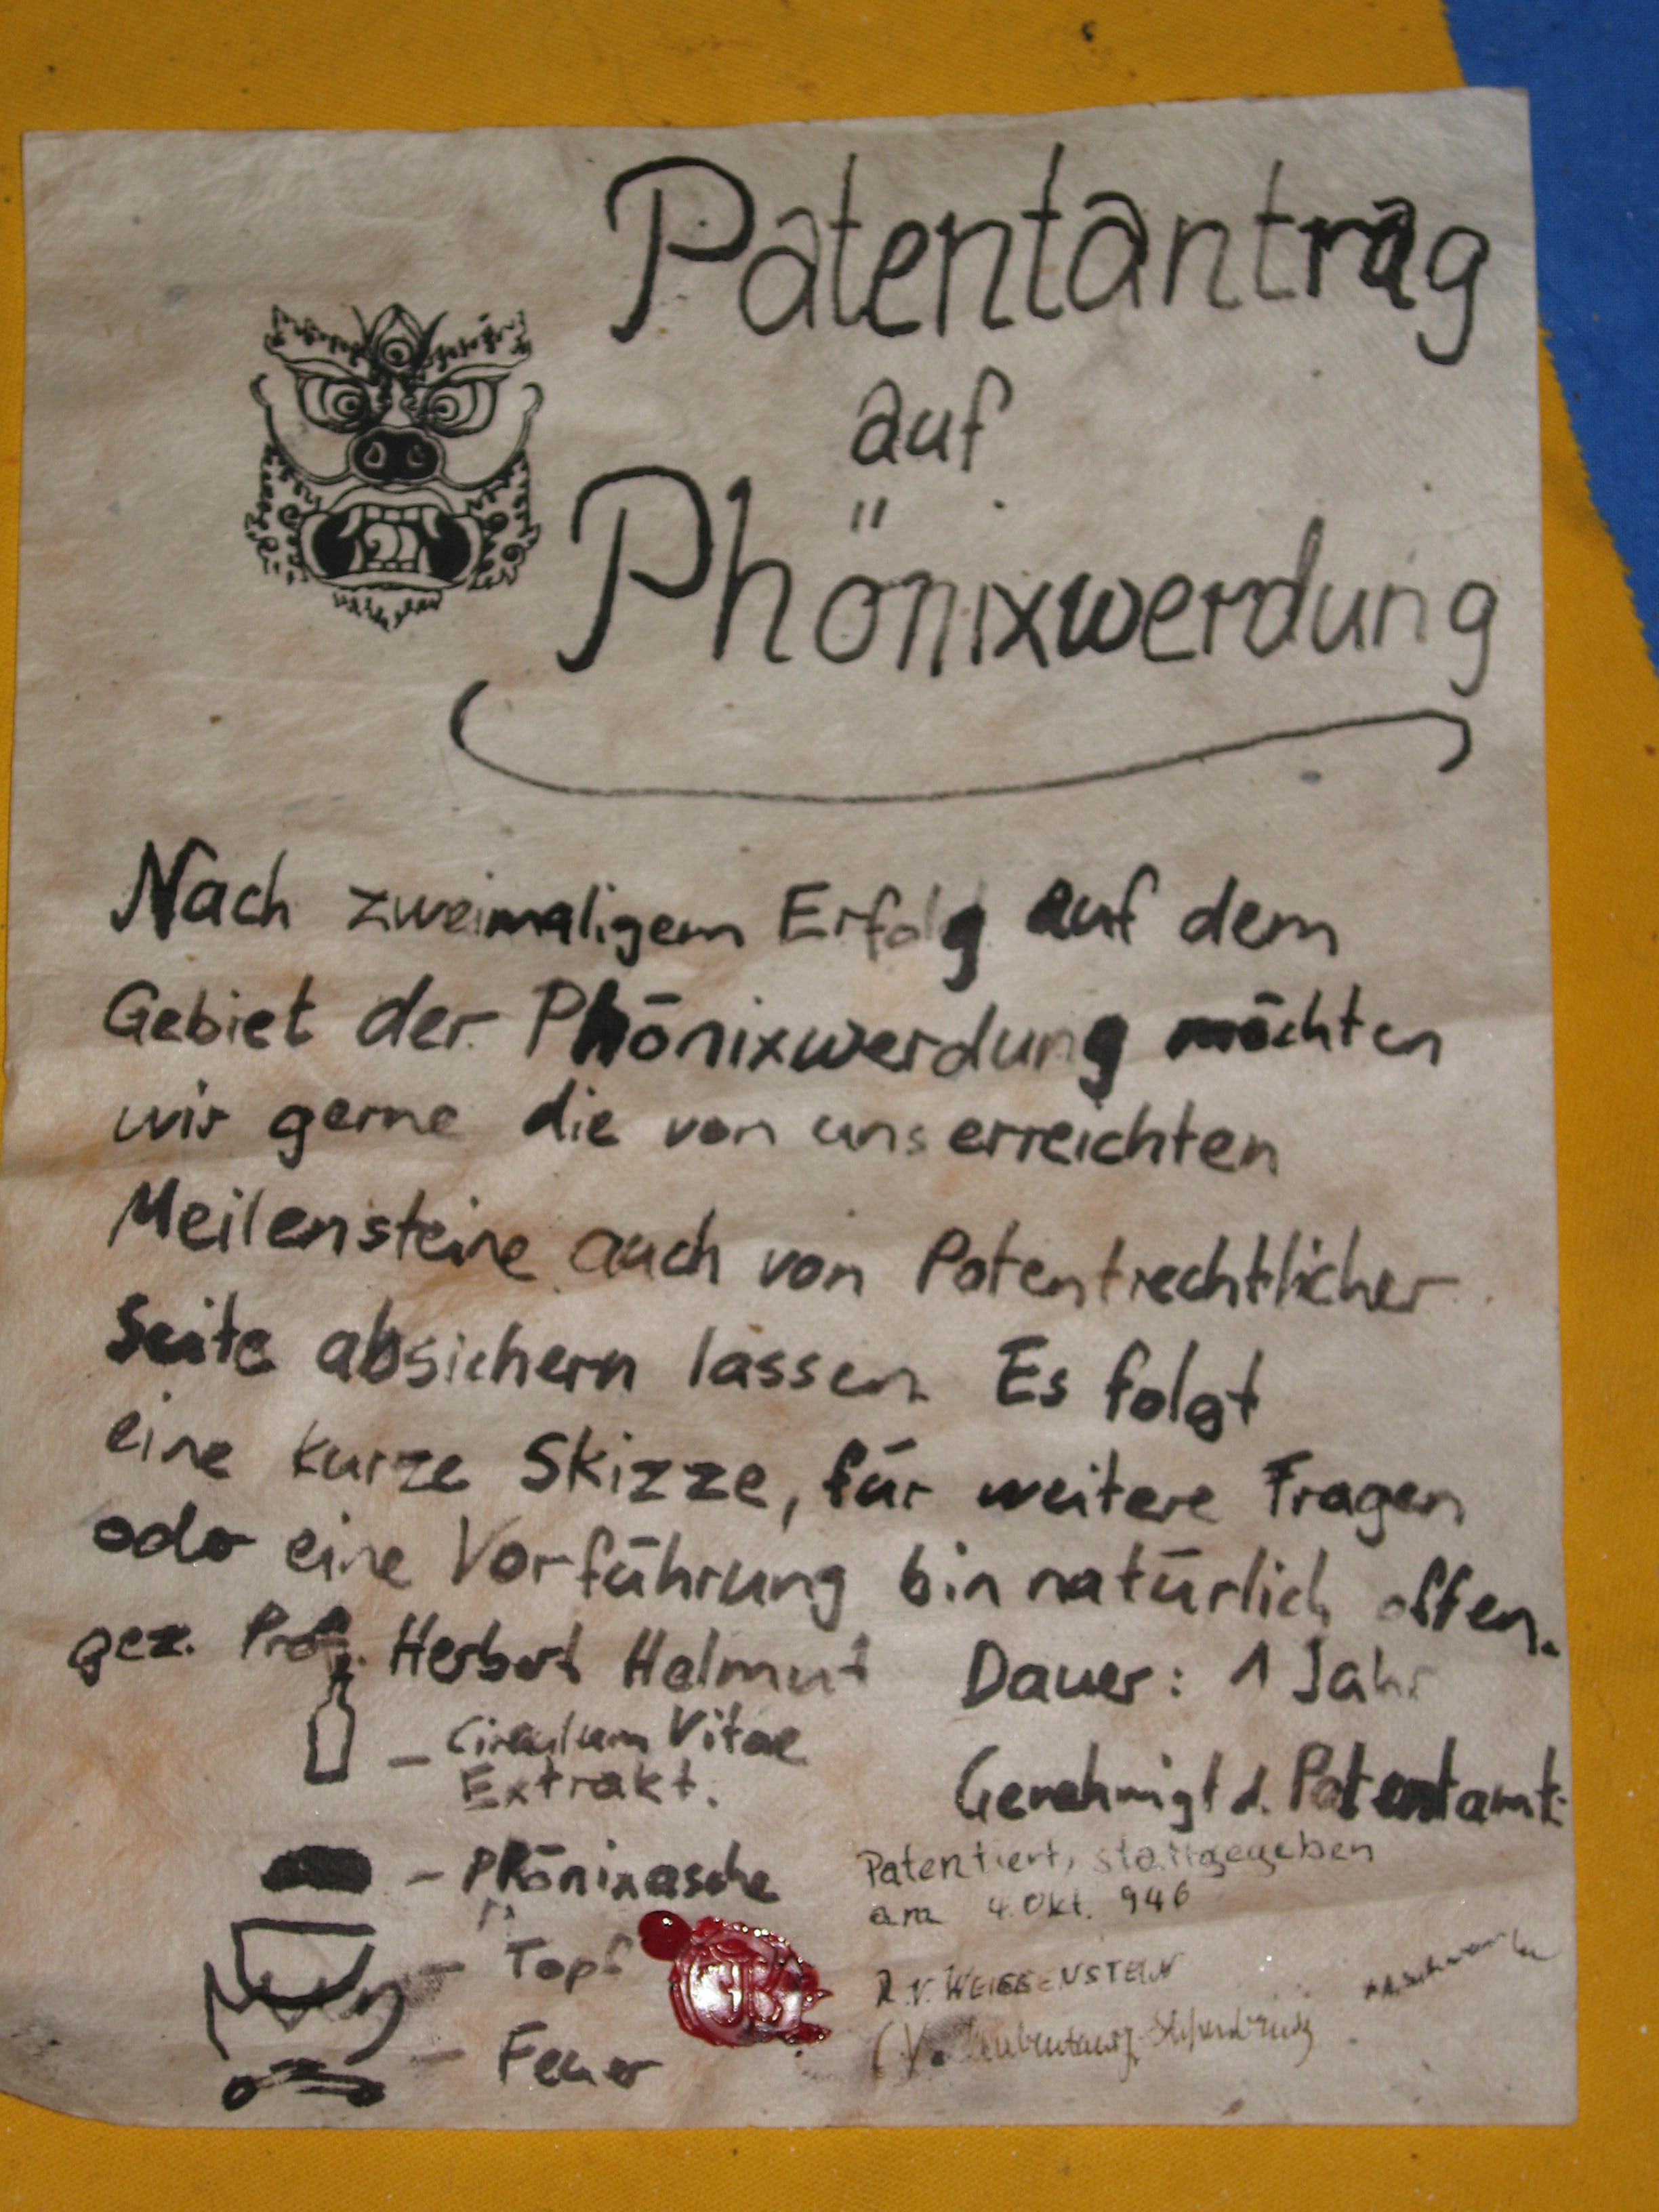 Patentantrag
auf
Phönixwerdung
Nach zweimaligem Erfolg auf dem
Gebiet der Phönixwerdung möchten
wir gerne die von uns erreichten
Meilensteine auch von Patentrechtlicher
Seite absichern lassen. Es folgt
eine kurze Skizze, für weitere Fragen
oder eine Vorführung bin natürlich offen.
gez. Prof. Herbert Helmut
Dauer: 1 Jahr
Circulum Vitae
Extrakt.
Genehmigt d. Patentamt:
- Phönixasche
Patentiert, stattgegeben
am 4. Okt. 946
- Topf
R. V. WEISSENSTEIN
- Feuer